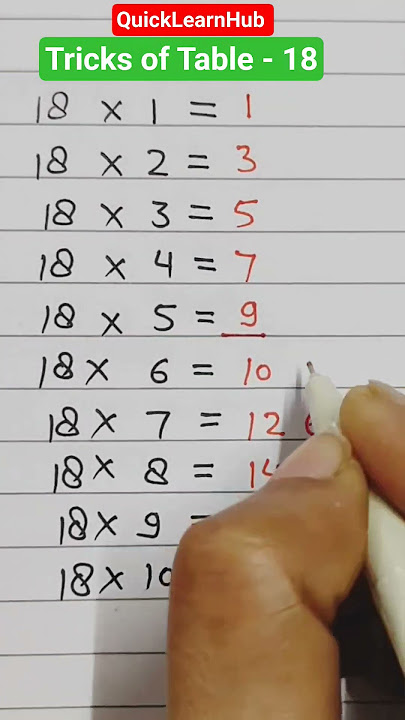 QuickLearnHub
Tricks of Table - 18
18 × 1 = 1
18 × 2 = 3
18 × 3 = 5
18 × 4 = 7
18 × 5 = 9
18 × 6 = 10
18 × 7 = 12
18 × 8 = 14
18 × 9 =
18 × 10